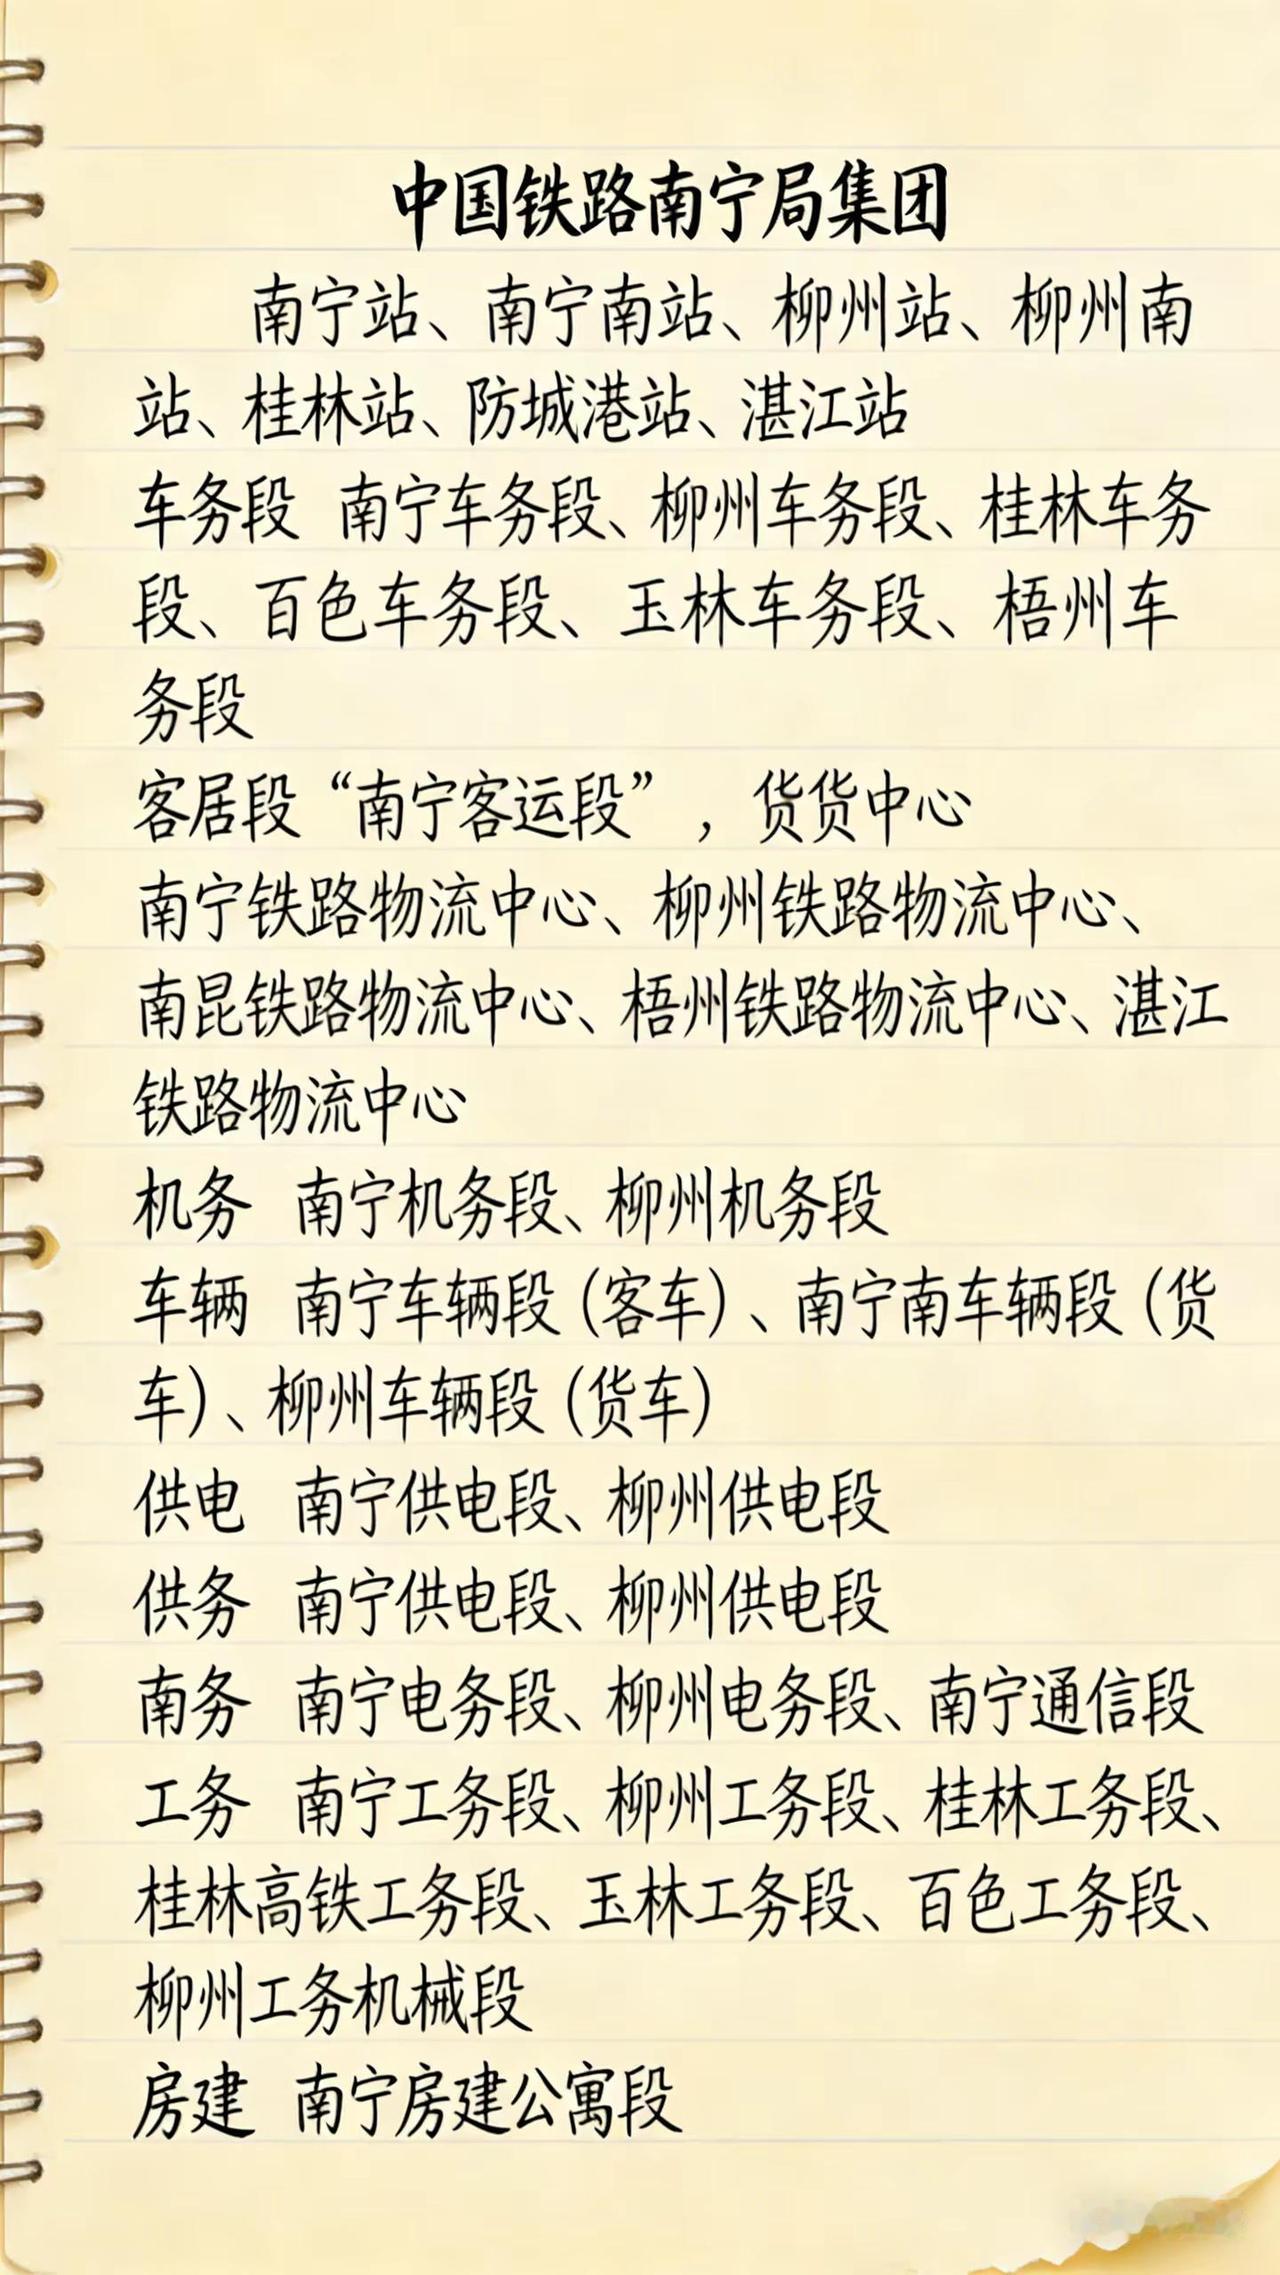 中国铁路南宁局集团
南宁站、南宁南站、柳州站、柳州南
站、桂林站、防城港站、湛江站
车务段 南宁车务段、柳州车务段、桂林车务
段、百色车务段、玉林车务段、梧州车
务段
客居段“南宁客运段”，货货中心
南宁铁路物流中心、柳州铁路物流中心、
南昆铁路物流中心、梧州铁路物流中心、湛江
铁路物流中心
机务 南宁机务段、柳州机务段
车辆 南宁车辆段（客车）、南宁南车辆段（货
车）、柳州车辆段（货车）
供电 南宁供电段、柳州供电段
供务 南宁供电段、柳州供电段
南务 南宁电务段、柳州电务段、南宁通信段
工务 南宁工务段、柳州工务段、桂林工务段、
桂林高铁工务段、玉林工务段、百色工务段、
柳州工务机械段
房建 南宁房建公寓段